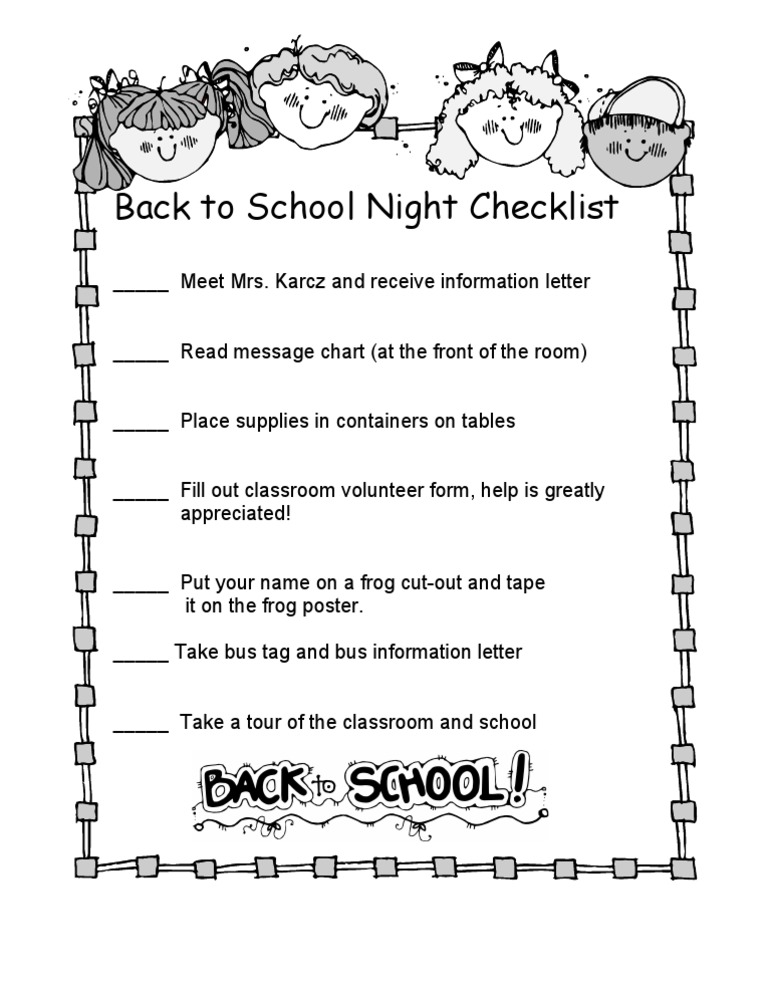 Back to School Night Checklist
_____ Meet Mrs. Karcz and receive information letter
_____ Read message chart (at the front of the room)
_____ Place supplies in containers on tables
_____ Fill out classroom volunteer form, help is greatly
appreciated!
_____ Put your name on a frog cut-out and tape
it on the frog poster.
_____ Take bus tag and bus information letter
_____ Take a tour of the classroom and school
BACK to SCHOOL!